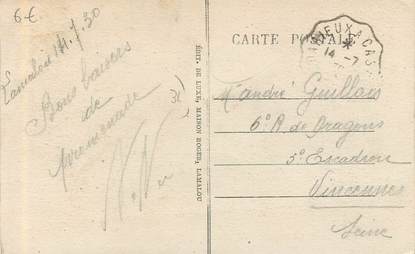 6€
Lamalou 14.7.30
Bons baisers
de
promenade
ÉDIT. DE LUXE, MAISON ROGER, LAMALOU
CARTE POSTALE
14-7
M. André Guillais
6° R de Dragons
5° Escadron
Vincennes
Seine